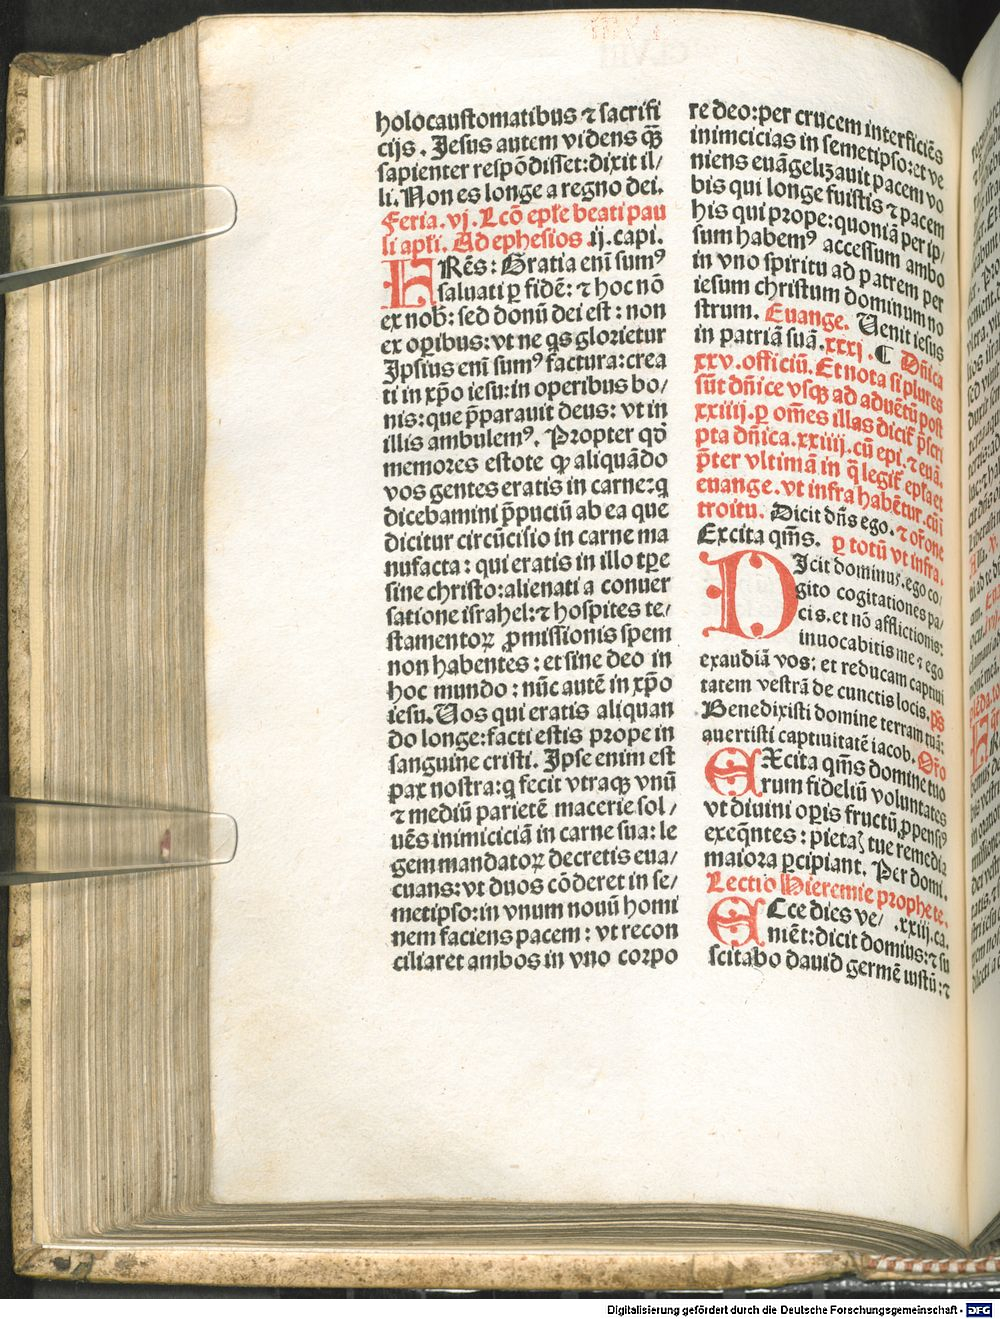 holocaustomatibus ⁊ sacrifi
cijs. Jesus autem videns qꝫ
sapienter respōdisset: dixit il/
li. Non es longe a regno dei.
Feria. vj. Lcō epl̄e beati pau
li apl̄i. Ad ephesios .ij. capi.
FRēs: Gratia eni̅ sumꝰ
saluati ꝑ fidē: ⁊ hoc nō
ex nob̄: sed donū dei est: non
ex oꝑibus: vt ne q̄s glorietur
Jpsius eni̅ sumꝰ factura: crea
ti in xp̄o iesu: in operibus bo/
nis: que p̄parauit deus: vt in
illis ambulemꝰ. Propter qḋ
memores estote ꝙ aliquādo
vos gentes eratis in carne: q
dicebamini p̄puciū ab ea que
dicitur circūcisio in carne ma
nufacta: qui eratis in illo tꝑe
sine christo: alienati a conuer
satione israhel: ⁊ hospites te/
stamentoꝝ ꝓmissionis spem
non habentes: et sine deo in
hoc mundo: nūc autē in xp̄o
iesu. Uos qui eratis aliquan
do longe: facti estis prope in
sanguine cristi. Jpse enim est
pax nostra: q fecit vtraqꝫ vnū
⁊ mediū parietē macerie sol/
uēs inimiciciā in carne sua: le
gem mandatoꝝ decretis eua/
cuans: vt duos cōderet in se/
metipso: in vnum nouū homi
nem faciens pacem: vt recon
ciliaret ambos in vno corpo
re deo: per crucem interficiēs
inimcicias in semetipso: et ve
niens euāgelizauit pacem vo
bis qui longe fuistis ⁊ pacem
his qui prope: quoniā per ip/
sum habemꝰ accessum ambo
in vno spiritu ad patrem per
iesum christum dominum no
strum. Euange. Uenit iesus
in patriā suā. xxxj. ¶ Dn̄ica
xxv. officiū. Et nota si plures
sūt dn̄ice vsqꝫ ad aduētū post
xxiiij. ꝑ om̄es illas dicit̄ p̄scri
pta dn̄ica. xxiiij. cū epi. ⁊ euā.
p̄ter vltimā in q̄ legit̄ epl̄a et
euange. vt infra habētur. cū i̅
troitu. Dicit dn̄s ego. ⁊ or̄one
Excita qm̄s. ꝑ totū vt infra.
DJcit dominus. ego co/
gito cogitationes pa/
cis. et nō afflictionis:
inuocabitis me ⁊ ego
exaudiā vos: et reducam captiui
tatem vestrā de cunctis locis. p̄s
Benedixisti domine terram tuā:
auertisti captiuitatē iacob. Or̄o
EXcita qm̄s domine tuo
rum fideliū voluntates
vt diuini oꝑis fructū ꝓpensiꝰ
exeq̄ntes: pietatꝭ tue remedia
maiora ꝑcipiant. Per domi.
Lectio Hieremie prophete.
ECce dies ve/ .xxiij. ca.
niēt: dicit domius: ⁊ su
scitabo dauid germē iustū: ⁊
Digitalisierung gefördert durch die Deutsche Forschungsgemeinschaft - DFG